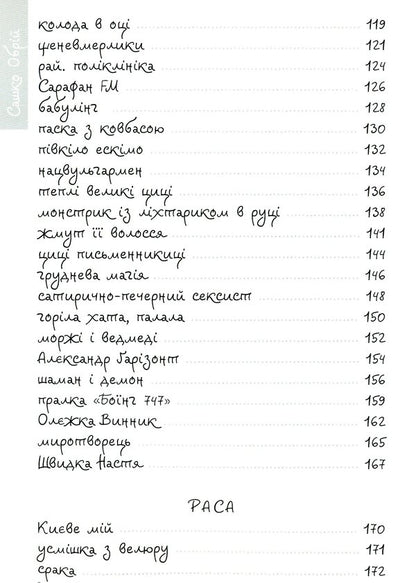 Сашко Обрій
колода в оці 119
феневмерлики 121
рай. поліклініка 124
Сарафан FM 126
бабулінг 128
паска з ковбасою 130
півкіло ескімо 132
нацвульгармен 134
теплі великі циці 136
монстрик із ліхтариком в руці 138
жмут її волосся 141
циці письменникиці 144
груднева магія 146
сатирично-печерний сексист 148
горіла хата, палала 150
моржі і ведмеді 152
Алєксандр Ґарізонт 154
шаман і демон 156
пралка «Боїнг 747» 159
Олєжка Винник 162
миротворець 165
Швидка Настя 167
РАСА
Києве мій 170
усмішка з велюру 171
срака 172